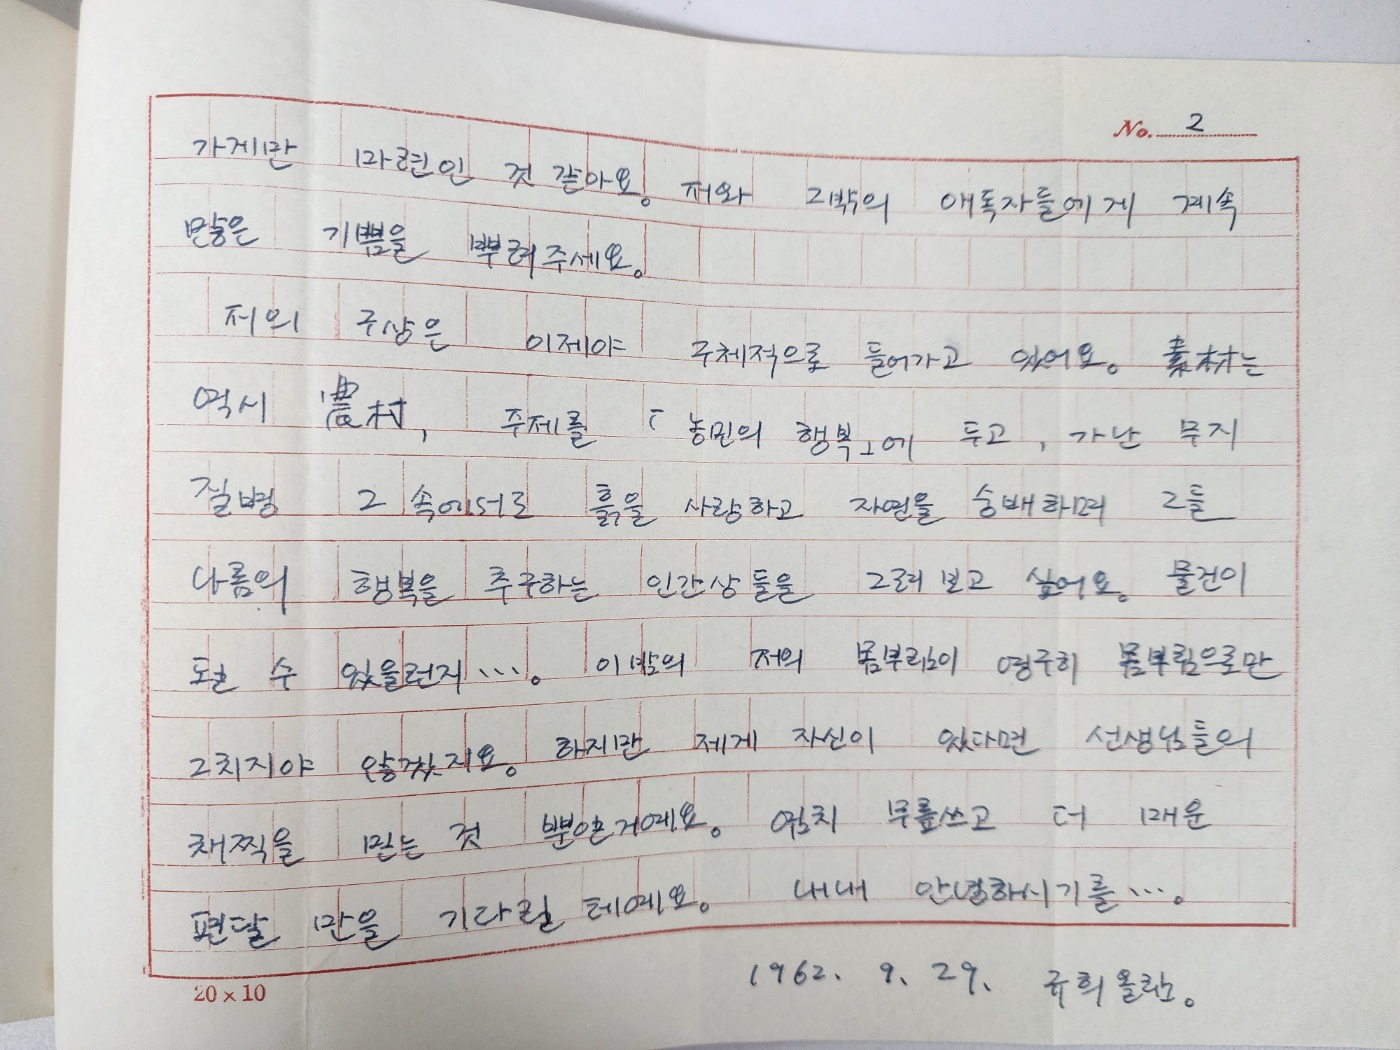 No. 2
가게만 마련인 것 같아요. 저와 그밖의 애독자들에게 계속
많은 기쁨을 뿌려주세요.
저의 구상은 이제야 구체적으로 들어가고 있어요. 素材는
역시 農村, 주제를 「농민의 행복」에 두고, 가난 무지
질병 그 속에서도 흙을 사랑하고 자연을 숭배하며 그들
나름의 행복을 추구하는 인간상들을 그려 보고 싶어요. 물건이
될 수 있을런지···. 이밖의 저의 몸부림이 영구히 몸부림으로만
그치지야 않겠지요. 하지만 제게 자신이 있다면 선생님들의
채찍을 믿는 것 뿐인거예요. 염치 무릎쓰고 더 매운
편달 만을 기다릴 테예요. 내내 안녕하시기를···.
1962. 9. 29. 규희 올림.
20 x 10